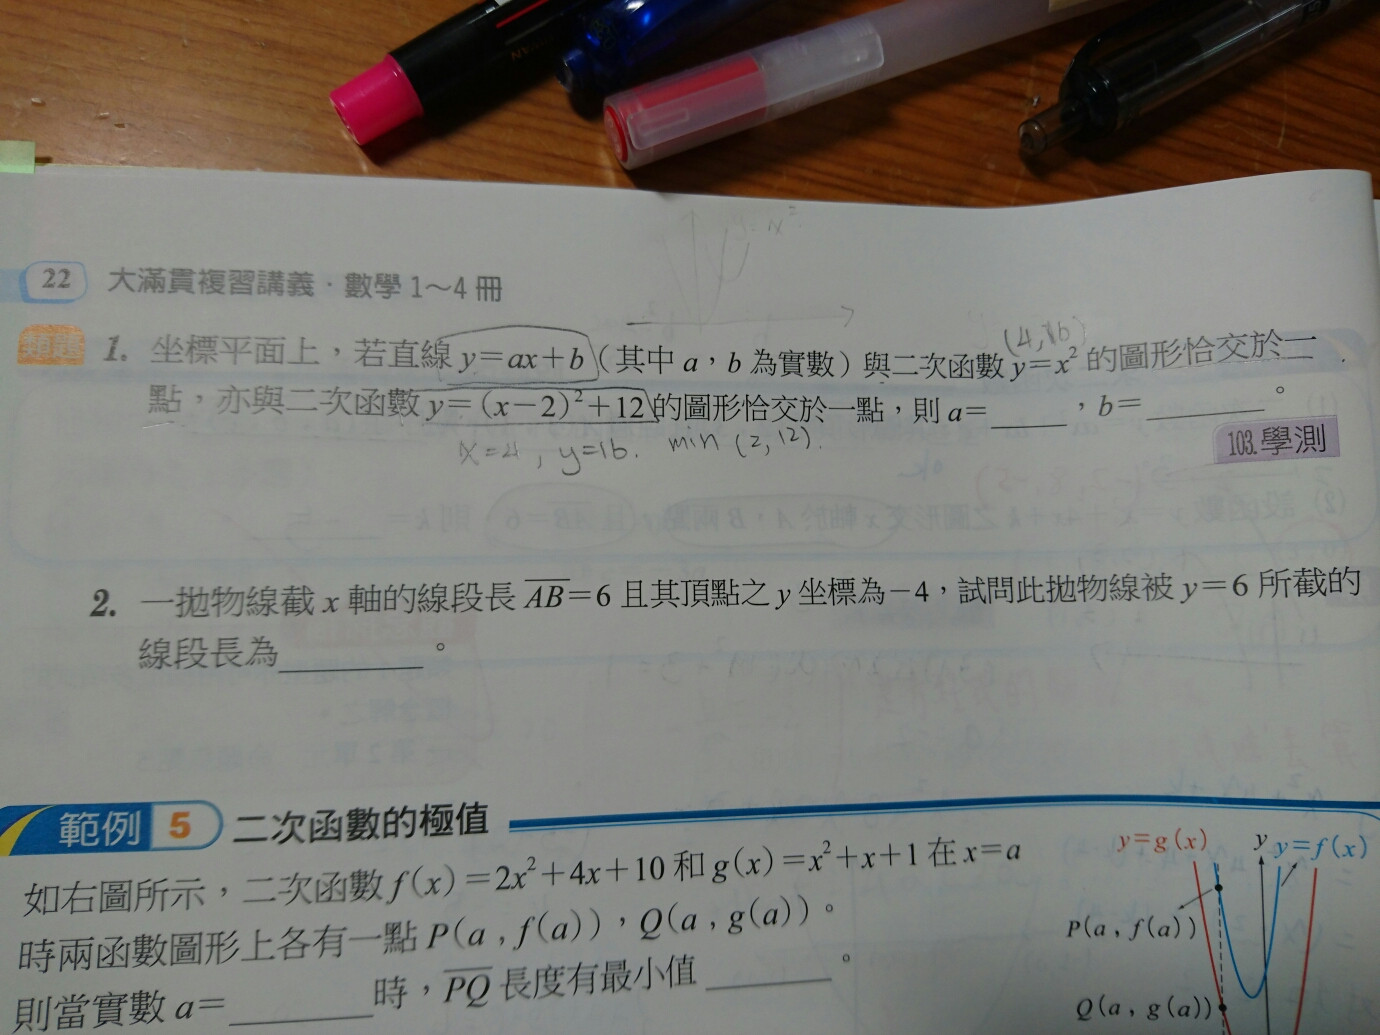 22 大滿貫複習講義．數學1～4冊
類題 1. 坐標平面上，若直線 y=ax+b（其中 a，b 為實數）與二次函數 y=x² 的圖形恰交於一
(4,16)
點，亦與二次函數 y=(x−2)²+12 的圖形恰交於一點，則 a=______，b=______。
x=4, y=16. min (2,12).
103.學測
2. 一拋物線截 x 軸的線段長 AB=6 且其頂點之 y 坐標為−4，試問此拋物線被 y=6 所截的
線段長為______。
範例 5 二次函數的極值
如右圖所示，二次函數 f(x)=2x²+4x+10 和 g(x)=x²+x+1 在 x=a
時兩函數圖形上各有一點 P(a，f(a))，Q(a，g(a))。
則當實數 a=______時，PQ 長度有最小值______。
y=g(x) y y=f(x)
P(a，f(a))
Q(a，g(a))